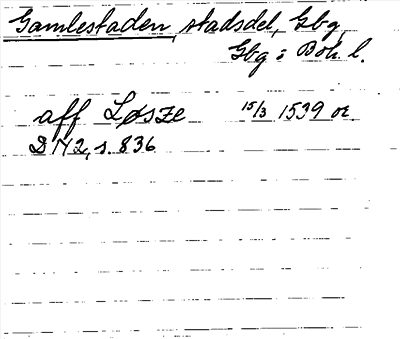 Gamlestaden, stadsdel, Gbg,
Gbg o Boh. l.
aff Løsze 15/3 1539 or
DN 2, s. 836